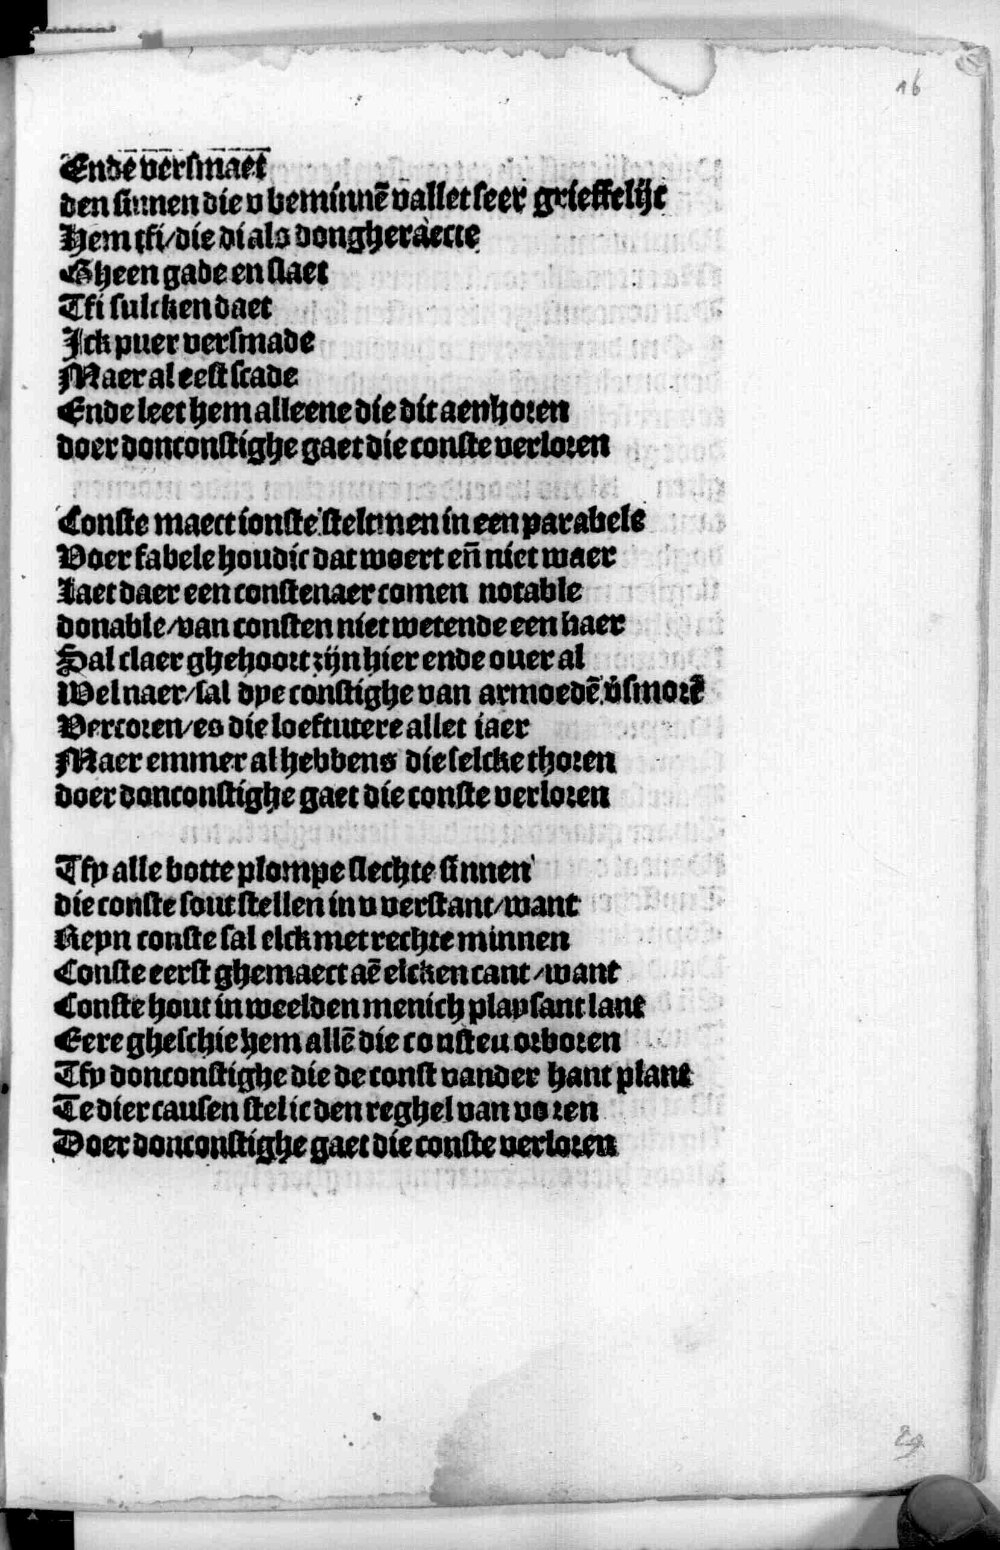 16
Ende versmaet
den sinnen die v beminnē vallet seer grieffelijc
Hem tfi/die di als dongheraecte
Gheen gade en slaet
Tfi sulcken daet
Ick puer versmade
Maer al eest scade
Ende leet hem alleene die dit aenhoren
doer donconstighe gaet die conste verloren
Conste maect ionste stelt men in een parabele
Voer fabele houdic dat woert eñ niet waer
Laet daer een constenaer comen notable
donable/van consten niet wetende een haer
Sal claer ghehoort zijn hier ende ouer al
Welnaer/sal dye constighe van armoedē v̄smorē
Vercoren/es die loeftutere allet iaer
Maer emmer al hebbens die selcke thoren
doer donconstighe gaet die conste verloren
Tfy alle botte plompe slechte sinnen
die conste sout stellen in v verstant/want
Reyn conste sal elck met rechte minnen
Conste eerst ghemaect aē elcken cant/want
Conste hout in weelden menich playsant lant
Eere gheschie hem allē die consteu orboren
Tfy donconstighe die de const vander hant plant
Te dier causen stel ic den reghel van voren
Doer donconstighe gaet die conste verloren